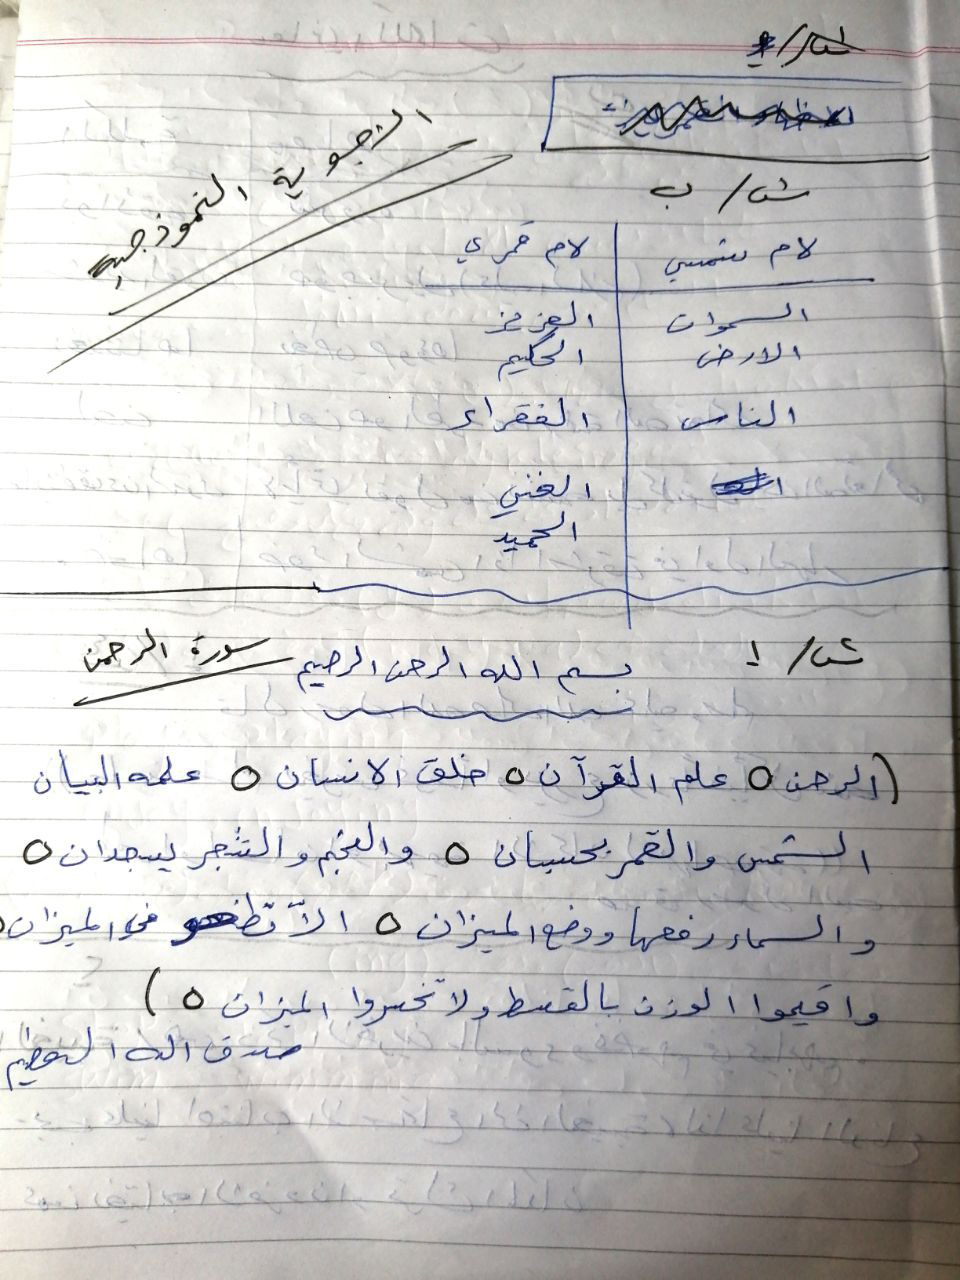 الاجوبة النموذجية
ش/ ب
لام شمسي لام قمري
السموات العزيز
الارض الحكيم
الناس الفقراء
الغني
الحميد
ش/ ١
بسم الله الرحمن الرحيم سورة الرحمن
(الرحمن O علم القرآن O خلق الانسان O علمه البيان
الشمس والقمر بحسبان O والنجم والشجر يسجدان O
والسماء رفعها ووضع الميزان O الاّ تطغو في الميزان O
واقيموا الوزن بالقسط ولا تخسروا الميزان O )
صدق الله العظيم